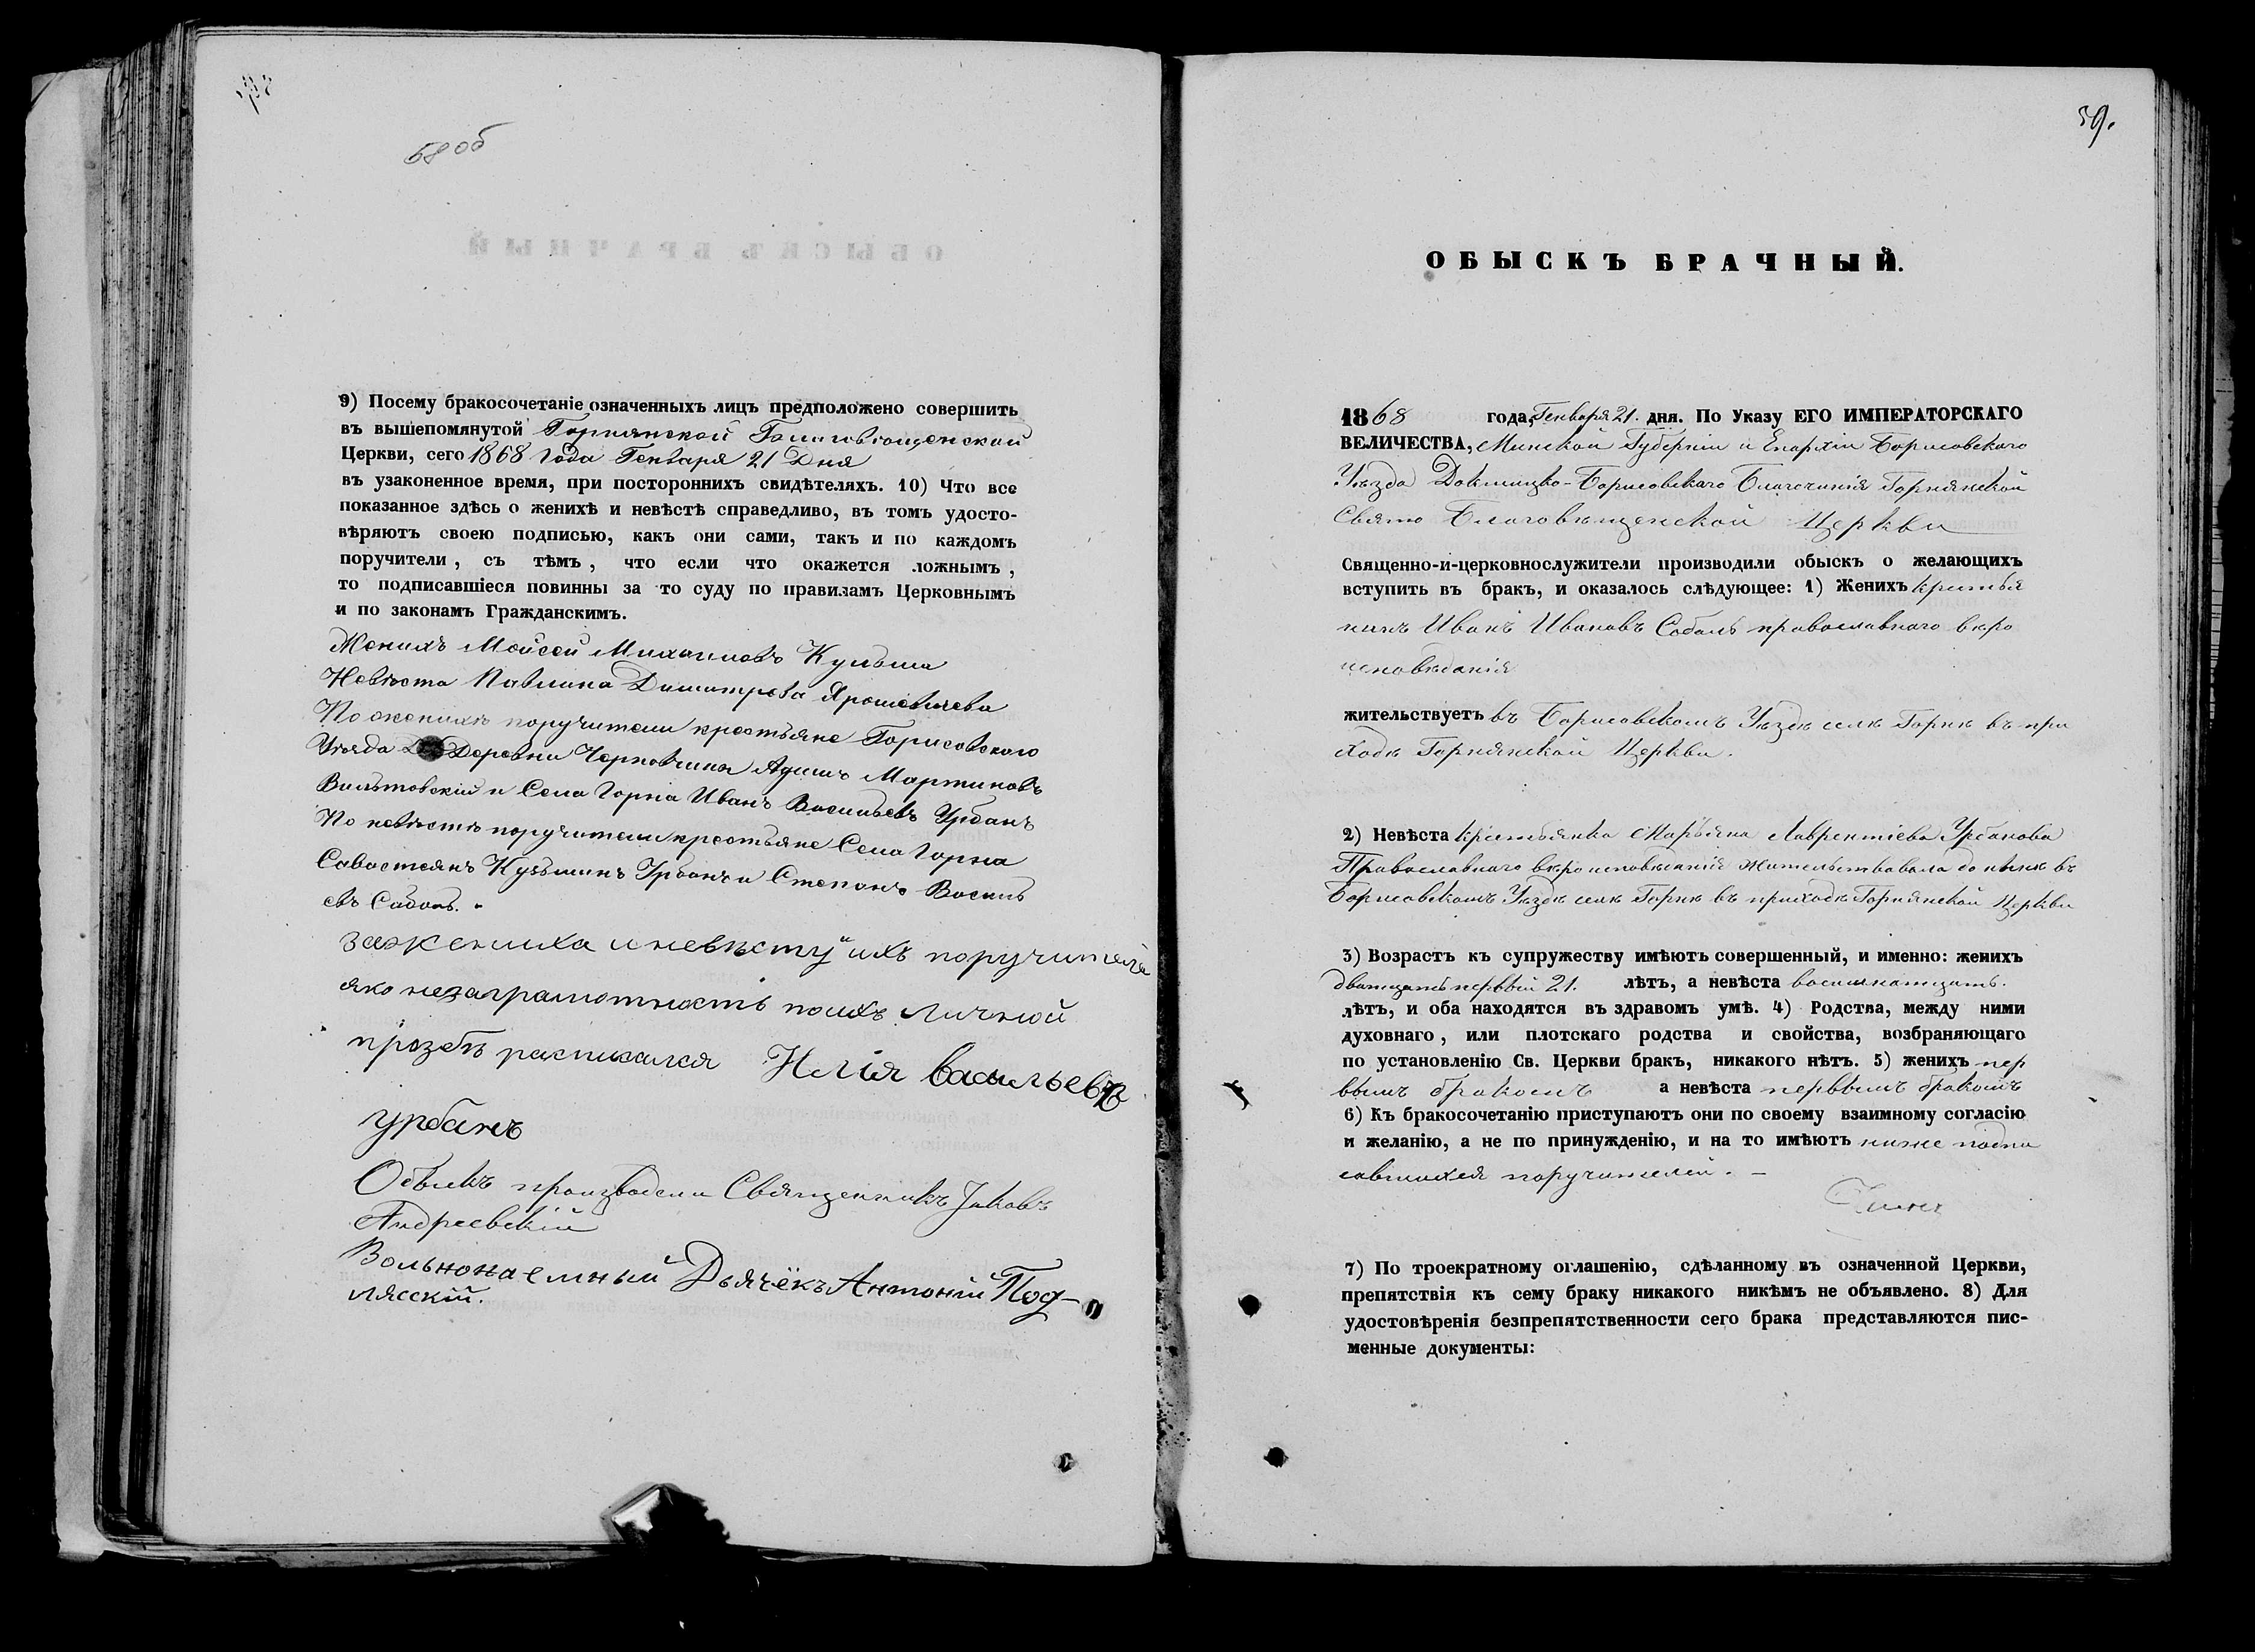 58 об
9) Посему бракосочетаніе означенныхъ лицъ предположено совершить
въ вышепомянутой Горнянской Благовѣщенской
Церкви, сего 1868 Года Генваря 21 Дня
въ узаконенное время, при постороннихъ свидѣтеляхъ. 10) Что все
показанное здѣсь о женихѣ и невѣстѣ справедливо, въ томъ удосто-
вѣряютъ своею подписью, какъ они сами, такъ и по каждомъ
поручители, съ тѣмъ, что если что окажется ложнымъ,
то подписавшіеся повинны за то суду по правиламъ Церковнымъ
и по законамъ Гражданскимъ.
Женихъ Мойсей Михаиловъ Кульша
Невѣста Павлина Димитрова Ярошевичева
По женихѣ поручители крестьяне Борисовского
Уѣзда Деревни Черновчина Адамъ Мартиновъ
Вильтовскій и Села Горна Иванъ Васильевъ Урбанъ
По невѣстѣ поручители крестьяне Села Горна
Савостіянъ Кузьминъ Урбанъ и Степанъ Василь
евъ Саболь.
за жениха и невѣсту ихъ поручителе
яко незаграмотность поихъ личной
прозбѣ расписался Илія Васильевъ
урбанъ
Обыскъ производили Священникъ Іаковъ
Андреевскій
Вольнонаемный Дьячёкъ Антоній Под-
лясскій.
59.
ОБЫСКЪ БРАЧНЫЙ.
1868 года, Генваря 21. дня. По Указу ЕГО ИМПЕРАТОРСКАГО
ВЕЛИЧЕСТВА, Минской Губерніи и Епархіи Борисовскаго
Уѣзда Докшицко-Борисовскаго Благочинія Горнянской
Свято Благовѣщенской Церкви
Священно-и-церковнослужители производили обыскъ о желающихъ
вступить въ бракъ, и оказалось слѣдующее: 1) Женихъ крестья
нинъ Иванъ Ивановъ Соболь православнаго вѣро
исповѣданія
жительствуетъ въ Борисовскомъ Уѣздѣ селѣ Горнѣ въ при
ходѣ Горнянской Церкви.
2) Невѣста крестьянка Марьяна Лаврентіева Урбанова
Православнаго вѣроисповѣданія жительствовала до нынѣ въ
Борисовскомъ Уѣздѣ селѣ Горнѣ въ приходѣ Горнянской Церкви
3) Возрастъ къ супружеству имѣютъ совершенный, и именно: женихъ
дватцать первый 21. лѣтъ, а невѣста восимнатцать.
лѣтъ, и оба находятся въ здравомъ умѣ. 4) Родства, между ними
духовнаго, или плотскаго родства и свойства, возбраняющаго
по установленію Св. Церкви бракъ, никакого нѣтъ. 5) женихъ пер
вымъ бракомъ а невѣста первымъ бракомъ
6) Къ бракосочетанію приступаютъ они по своему взаимному согласію
и желанію, а не по принужденію, и на то имѣютъ ниже подпи
савшихся поручителей. –
7) По троекратному оглашенію, сдѣланному въ означенной Церкви,
препятствія къ сему браку никакого никѣмъ не объявлено. 8) Для
удостовѣренія безпрепятственности сего брака представляются пис-
менные документы: